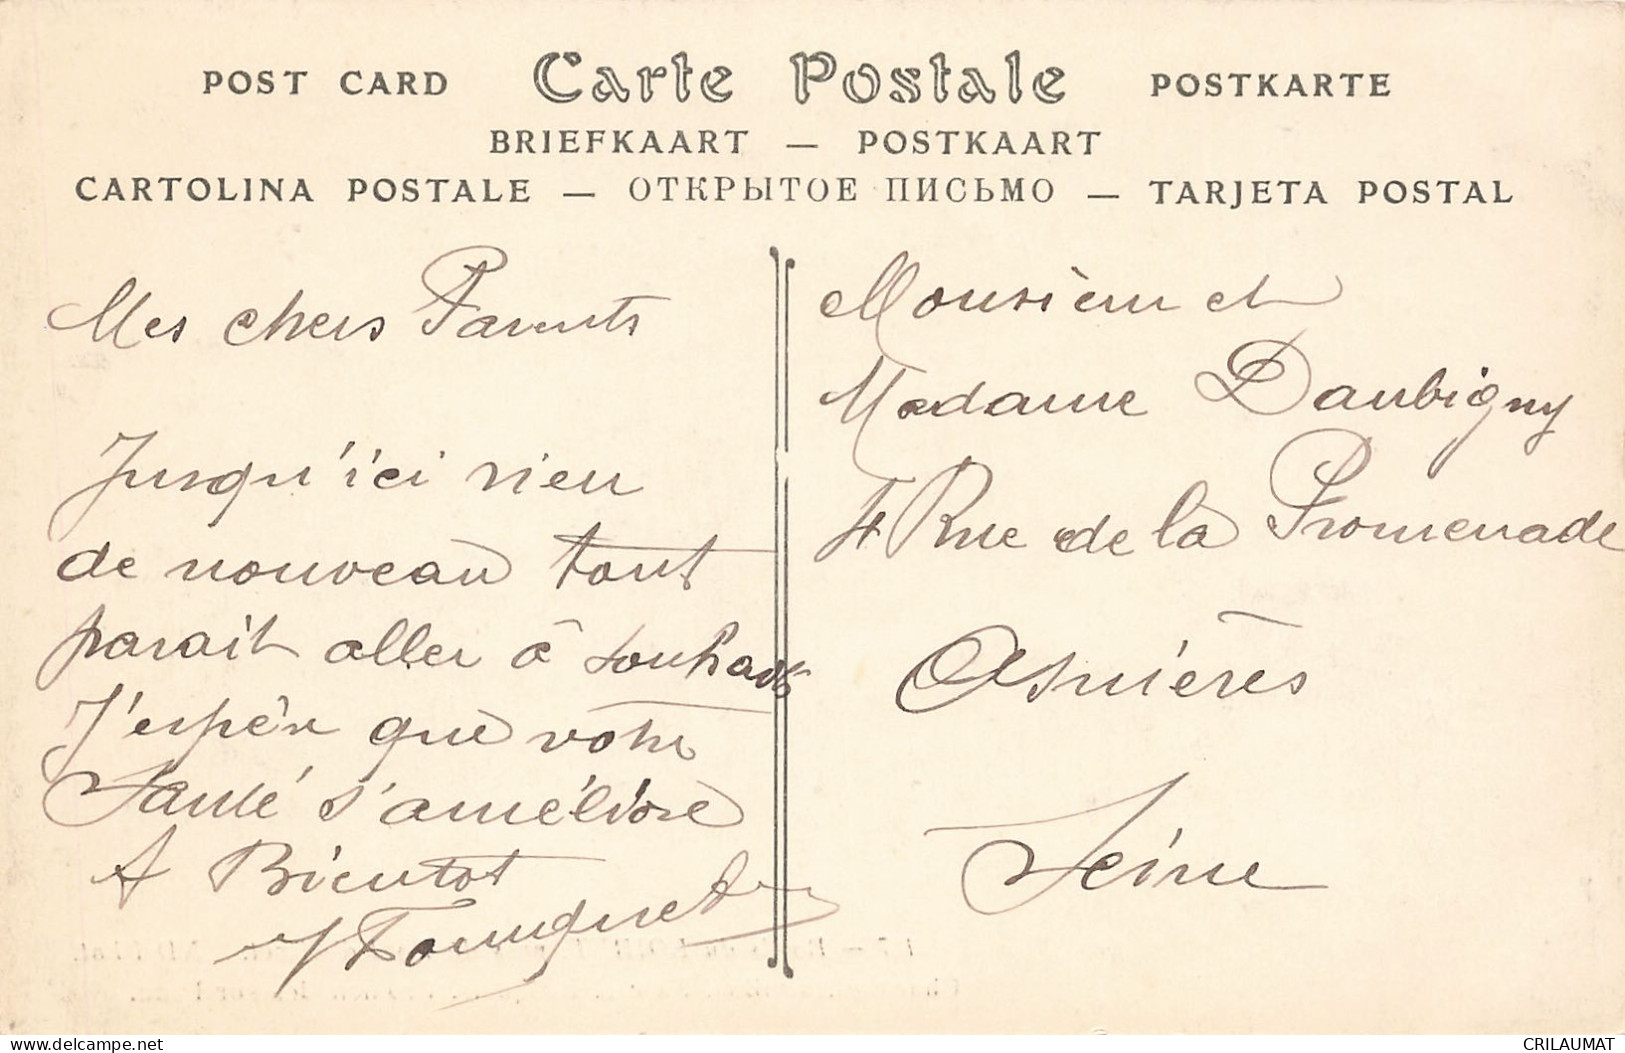 POST CARD Carte Postale POSTKARTE
BRIEFKAART — POSTKAART
CARTOLINA POSTALE — ОТКРЫТОЕ ПИСЬМО — TARJETA POSTAL
Mes chers Parents
Jusqu'ici rien
de nouveau tout
parait aller à souhait
J'espère que votre
Santé s'améliore
A Bientot
Monsieur et
Madame Daubigny
4 Rue de la Promenade
Asnières
Seine
delcampe.net
CRILAUMAT